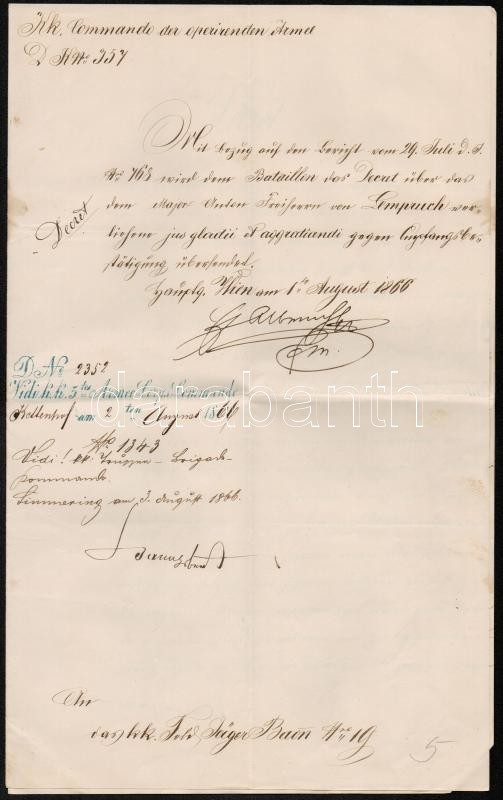 Kk. Commando der operirenden Armee
D. K. No 357
Mit bezug auf den Bericht vom 24. Juli d. J.
Decret
No 768 wird dem Bataillon das Decret über das
dem Major Anton Freiherrn von Lempruch ver-
liehene jus gladii et aggratiandi gegen Empfangsbe-
stätigung übersendet.
Hauptq. Wien am 1ten August 1866
FM.
D. No 2352
Vidi k. k. 5tes Armee Corps Commando
am 2ten August 1866
No 1343
Vidi! kk. Truppen-Brigade-
Kommando.
Simmering am 3. August 1866.
An
das k.k. Feld Jäger Baon Nro 19
5
darabanth